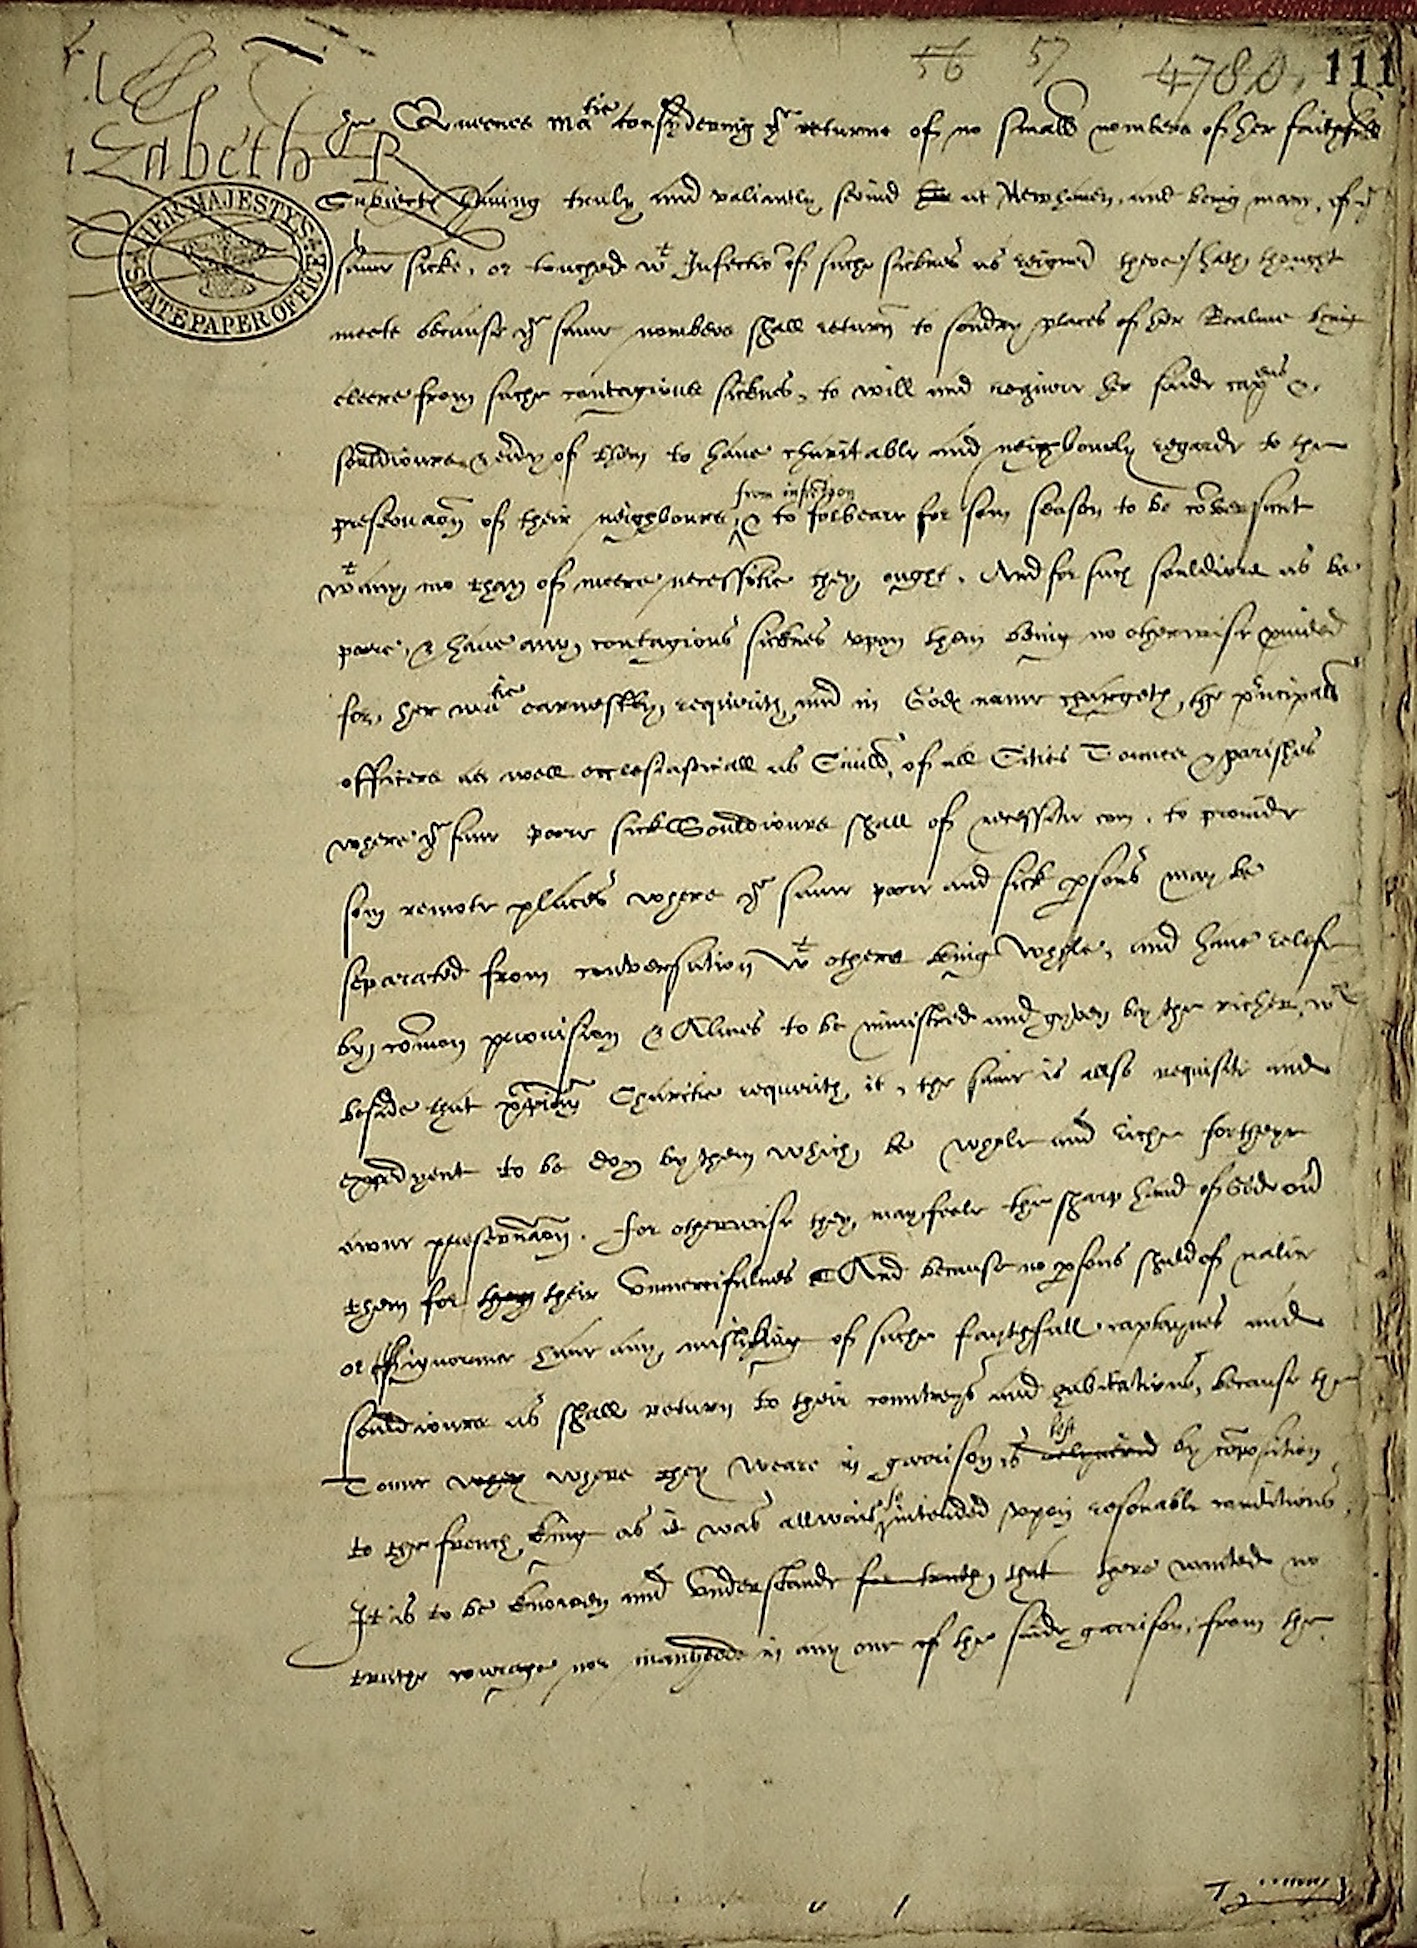 56 57 4780, 111
Elizabeth R
HER MAJESTY'S STATE PAPER OFFICE
The Quenes Matie consydering ye returne of no small nombers of her faithfull
Subiects having truly and valiantly servid at Newhaven, and being many of ye
same sicke, or touched wt Infectio of suche sicknes as reigned there / hath thought
meete because ye same nombers shall return to sondry places of her Realme being
cleere from suche contagious sicknes, to will and requier her saide capens &
souldiours & every of them to have charitable and neighbourly regarde to the
preservaon of their neighbours, from infection & to forbeare for som season to be coversant
wt any mo than of meere necessitie they ought. And for such souldiors as be
poore, & have any contagious sicknes vpon them being no otherwise provided
for, her Matie earnestly requireth, and in Gods name chargeth, the principall
officers as well ecclesiasticall as Civill, of all Cities Townes & parishes
where ye same poore sick Souldiours shall of necessitie com, to provide
som remote places where ye same poore and sick psons may be
separated from conversation wt others being whole, and have relefe
by comon provision & Almes to be ministred and gyven by the richer, wch
beside that Charitie requireth it, the same is also requisite and
expedyent to be don by them which be whole and riche for theyr
owne preservaon. for otherwise they may feele the sharp hand of God over
them for their vnmercifulnes And because no psons shuld of malice
or ignorance have any mislyking of suche faythfull captaynes and
souldiours as shall return to their countreys and habitations, because the
Towne they where they weare in garrison is left by coposition
to the french king as it was allwais so intended vpon resonable conditions,
It is to be knowen and vnderstande for truth, that there wanted no
truthe courage nor manhoode in any one of the saide garrison, from the